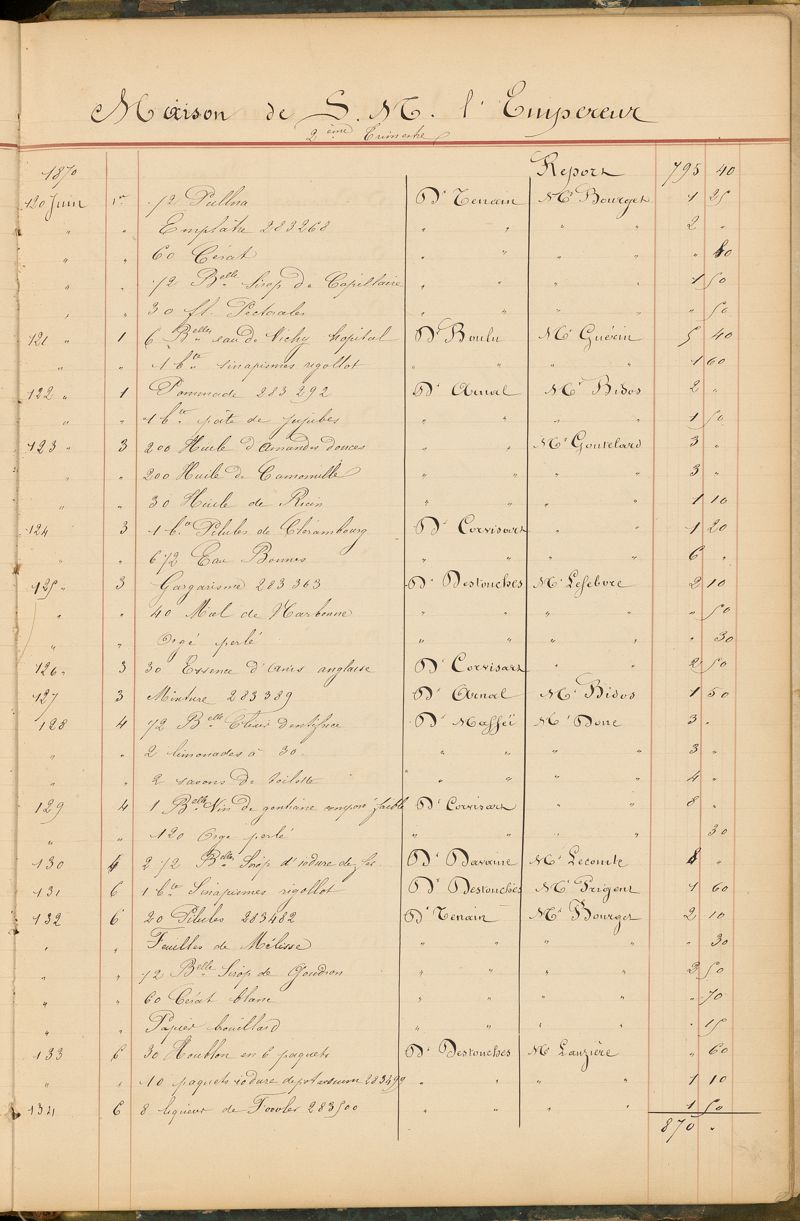 Maison de S. M. l'Empereur
2ème Trimestre
1870 Report 795 40
120 Juin 1er 1/2 Pullna Dr Tenain Mr Bourget 1 25
" " Emplâtre 283268 " " " " 2 "
" " 60 Cérat " " " " " 40
" " 1/2 Belle Sirop de Capillaire " " " " 1 50
" " 30 fl. Pectorales " " " " " 50
121 " 1 6 Belles eau de Vichy hopital Dr Boulu Mr Guérin 5 40
" " 1 bte sinapismes rigollot " " " " 1 60
122 " 1 Pommade 283292 Dr Arnal Mr Bidos 2 "
" " 1 bte pâte de jujubes " " " " 1 50
123 " 3 200 Huile d'Amandes douces " " Mr Goutelard 3 "
" " 200 Huile de Camomille " " " " 3 "
" " 30 Huile de Ricin " " " " 1 10
124 3 1 bte Pilules de Clérambourg Dr Corvisart " " 1 20
" " 6 1/2 Eau Bonnes " " " " 6 "
125 " 3 Gargarisme 283363 Dr Destouches Mr Lefebvre 2 10
" " 40 Miel de Narbonne " " " " " 50
" " Orge perlé " " " " " 30
126 " 3 30 Essence d'Anis anglaise Dr Corvisart " " 2 50
127 3 Mixture 283389 Dr Arnal Mr Bidos 1 50
128 4 1/2 Belle Elixir dentifrice Dr Maffei Mr Dore 3 "
" " 2 limonades à 30 " " " " 3 "
" " 2 savons de toilette " " " " 4 "
129 4 1 Belle Vin de gentiane composé faible Dr Corvisart " " 8 "
" " 120 Orge perlé " " " " 30
130 4 2 1/2 Belles Sirop d'iodure de fer Dr Davaine Mr Lecomte 8 "
131 6 1 bte Sinapismes rigollot Dr Destouches Mr Prigent 1 60
132 6 20 Pilules 283482 Dr Tenain Mr Bourget 2 10
" " Feuilles de Mélisse " " " " " 30
" " 1/2 Belle Sirop de Goudron " " " " 2 50
" " 60 Cérat blanc " " " " " 70
" " Papier brouillard " " " " " 15
133 6 30 Houblon en 6 paquets Dr Destouches Mr Lanzière " 60
" " 10 paquets iodure de potassium 283499 " " " " 1 10
134 6 8 liqueur de Fowler 283500 " " " " 1 50
870 "